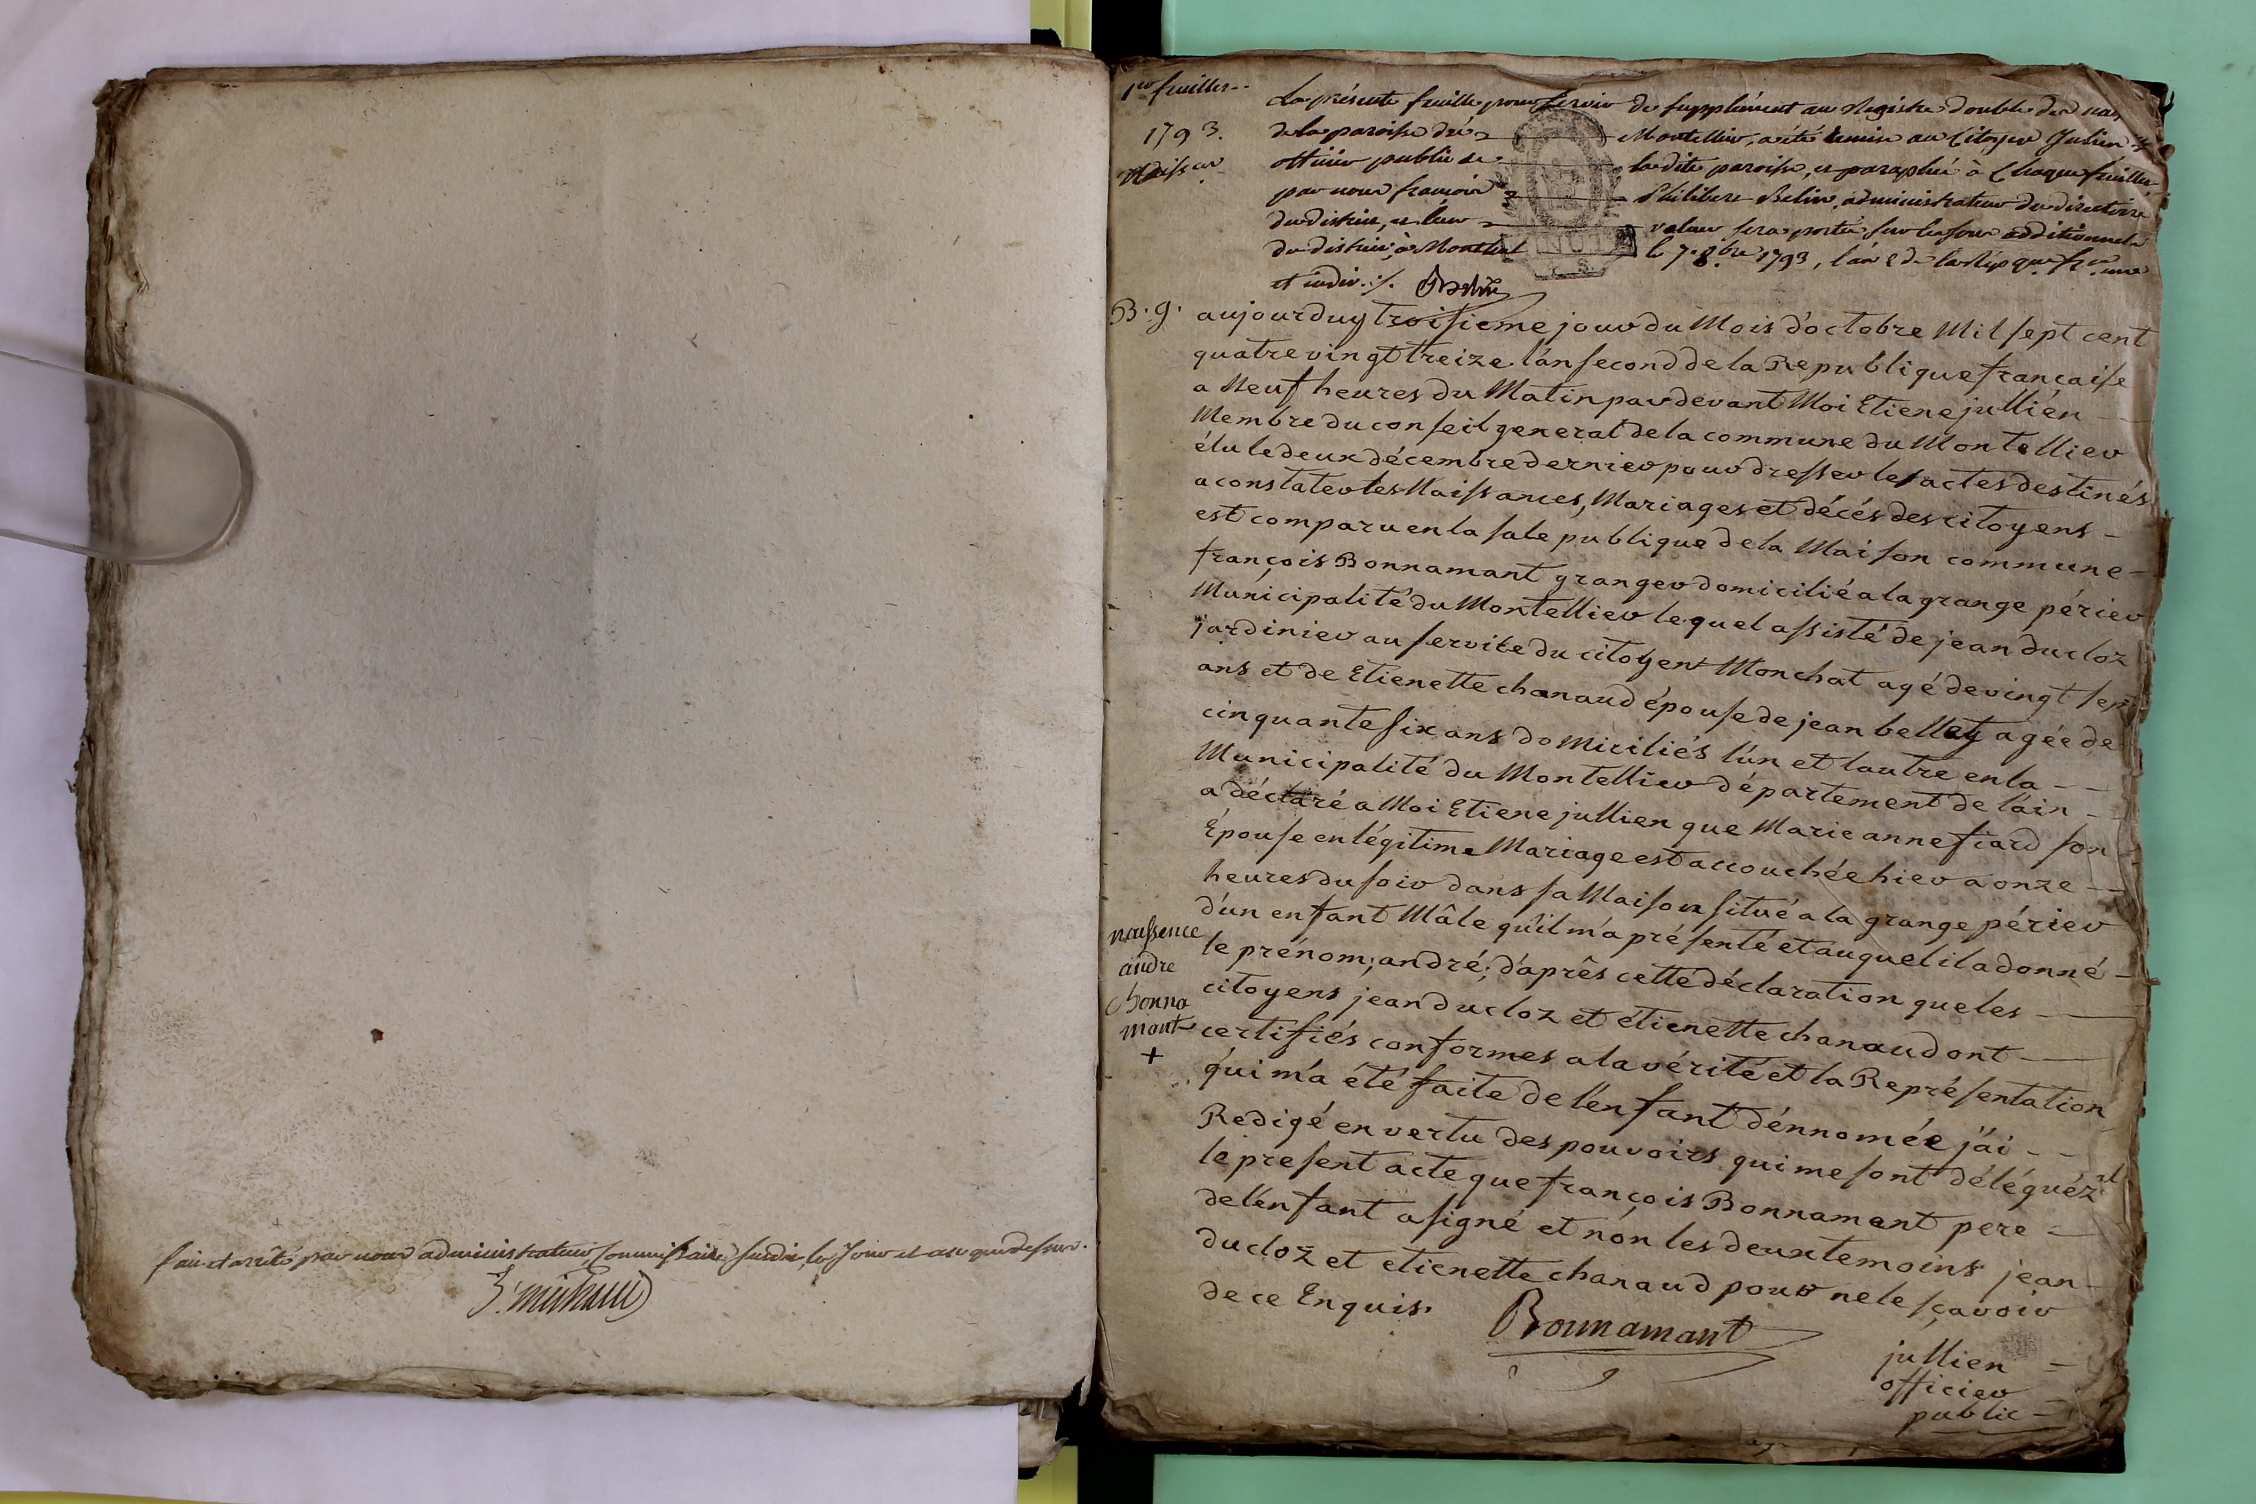 fait et arrêté par nous administrateur, Commissaire susdit, les Jour et an que dessus.
1er feuillet
1793.
Naissces
La présente feuille pour servir de supplément au Registre double des nais
de la paroisse du Montellier, a été remise au Citoyen Julien
officier public de ladite paroisse, et paraphée à Chaque feuillet
par nous francois Philibert Belin, administrateur du directoire
du district, et leur valeur sera portée sur les sous additionnels
du district, à Montluel le 7. 8bre 1793, l'an 2 de la Rép que fse une
et indiv. ·/. Belin
B. 9. aujourduy troisieme jour du Mois d'octobre Mil sept cent
quatrevingt treize l'án second de la Republique françaíse
a Neuf heures du Matin pardevant Moi Etiene jullién
Membre du conseil general de la commune du Montellier
élu le deux décembre dernier pour dresser les actes destinés
a constater les Naissances, Mariages et décés des citoyens
est comparu en la sale publique de la Maison commune
françois Bonnamant granger domicilié a la grange périer
Municipalité du Montellier lequel assisté de jean ducloz
jardinier au service du citoyen Monchat agé de vingt sept
ans et de Etienette chanaud épouse de jean bellay agée de
cinquante six ans domiciliés l'ún et lautre en la
Municipalité du Montellier département de l'áin
a déclaré a Moi Etiene jullien que Marie anne fiard son
Épouse en légitime Mariage est accouchée hier a onze
heures du soir dans sa Maison situé a la grange périer
d'un enfant Mâle qu'il m'a présenté et auquel il a donné
le prénom; andré; d'aprês cette déclaration que les
citoyens jean ducloz et étienette chanaud ont
certifiés conformes a la vérité et la Représentation
qui m'a été faite de l'enfant dénnomée j'ái
Redigé en vertu des pouvoirs qui me sont déléguéz
le present acte que françois Bonnamant pere
de l'enfant a signé et nón les deux temoins jean
ducloz et etienette chanaud pour ne le sçavoir
de ce Enquis.
naissence
andre
bonna
mant
+
Bonnamant
jullien
officier
public